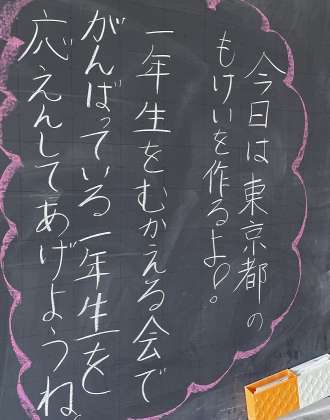 今日は東京都の
もけいを作るよ!。
一年生をむかえる会で
がんばっている一年生を
応えんしてあげようね。